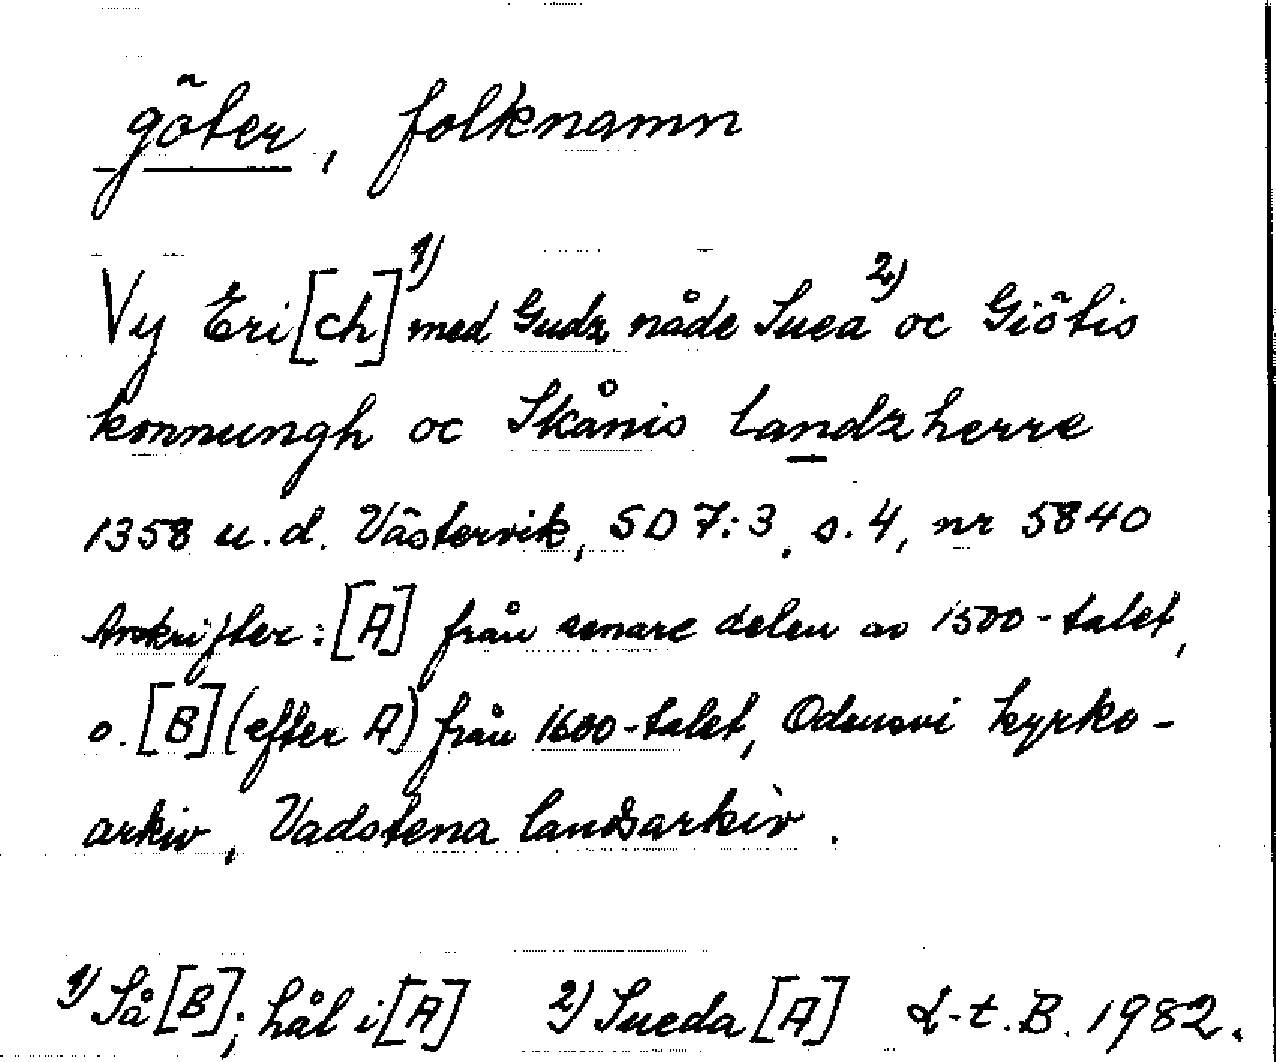 göter, folknamn
Vy Eri[ch]1) med Gudz nåde Suea2) oc Giötis
konnungh oc Skånis landzherre
1358 u.d. Västervik, SD 7:3, s. 4, nr 5840
Avskrifter: [A] från senare delen av 1500-talet,
o. [B] (efter A) från 1600-talet, Odensvi kyrko-
arkiv, Vadstena landsarkiv.
1) Så [B]; hål i [A] 2) Sueda [A] L-t. B. 1982.